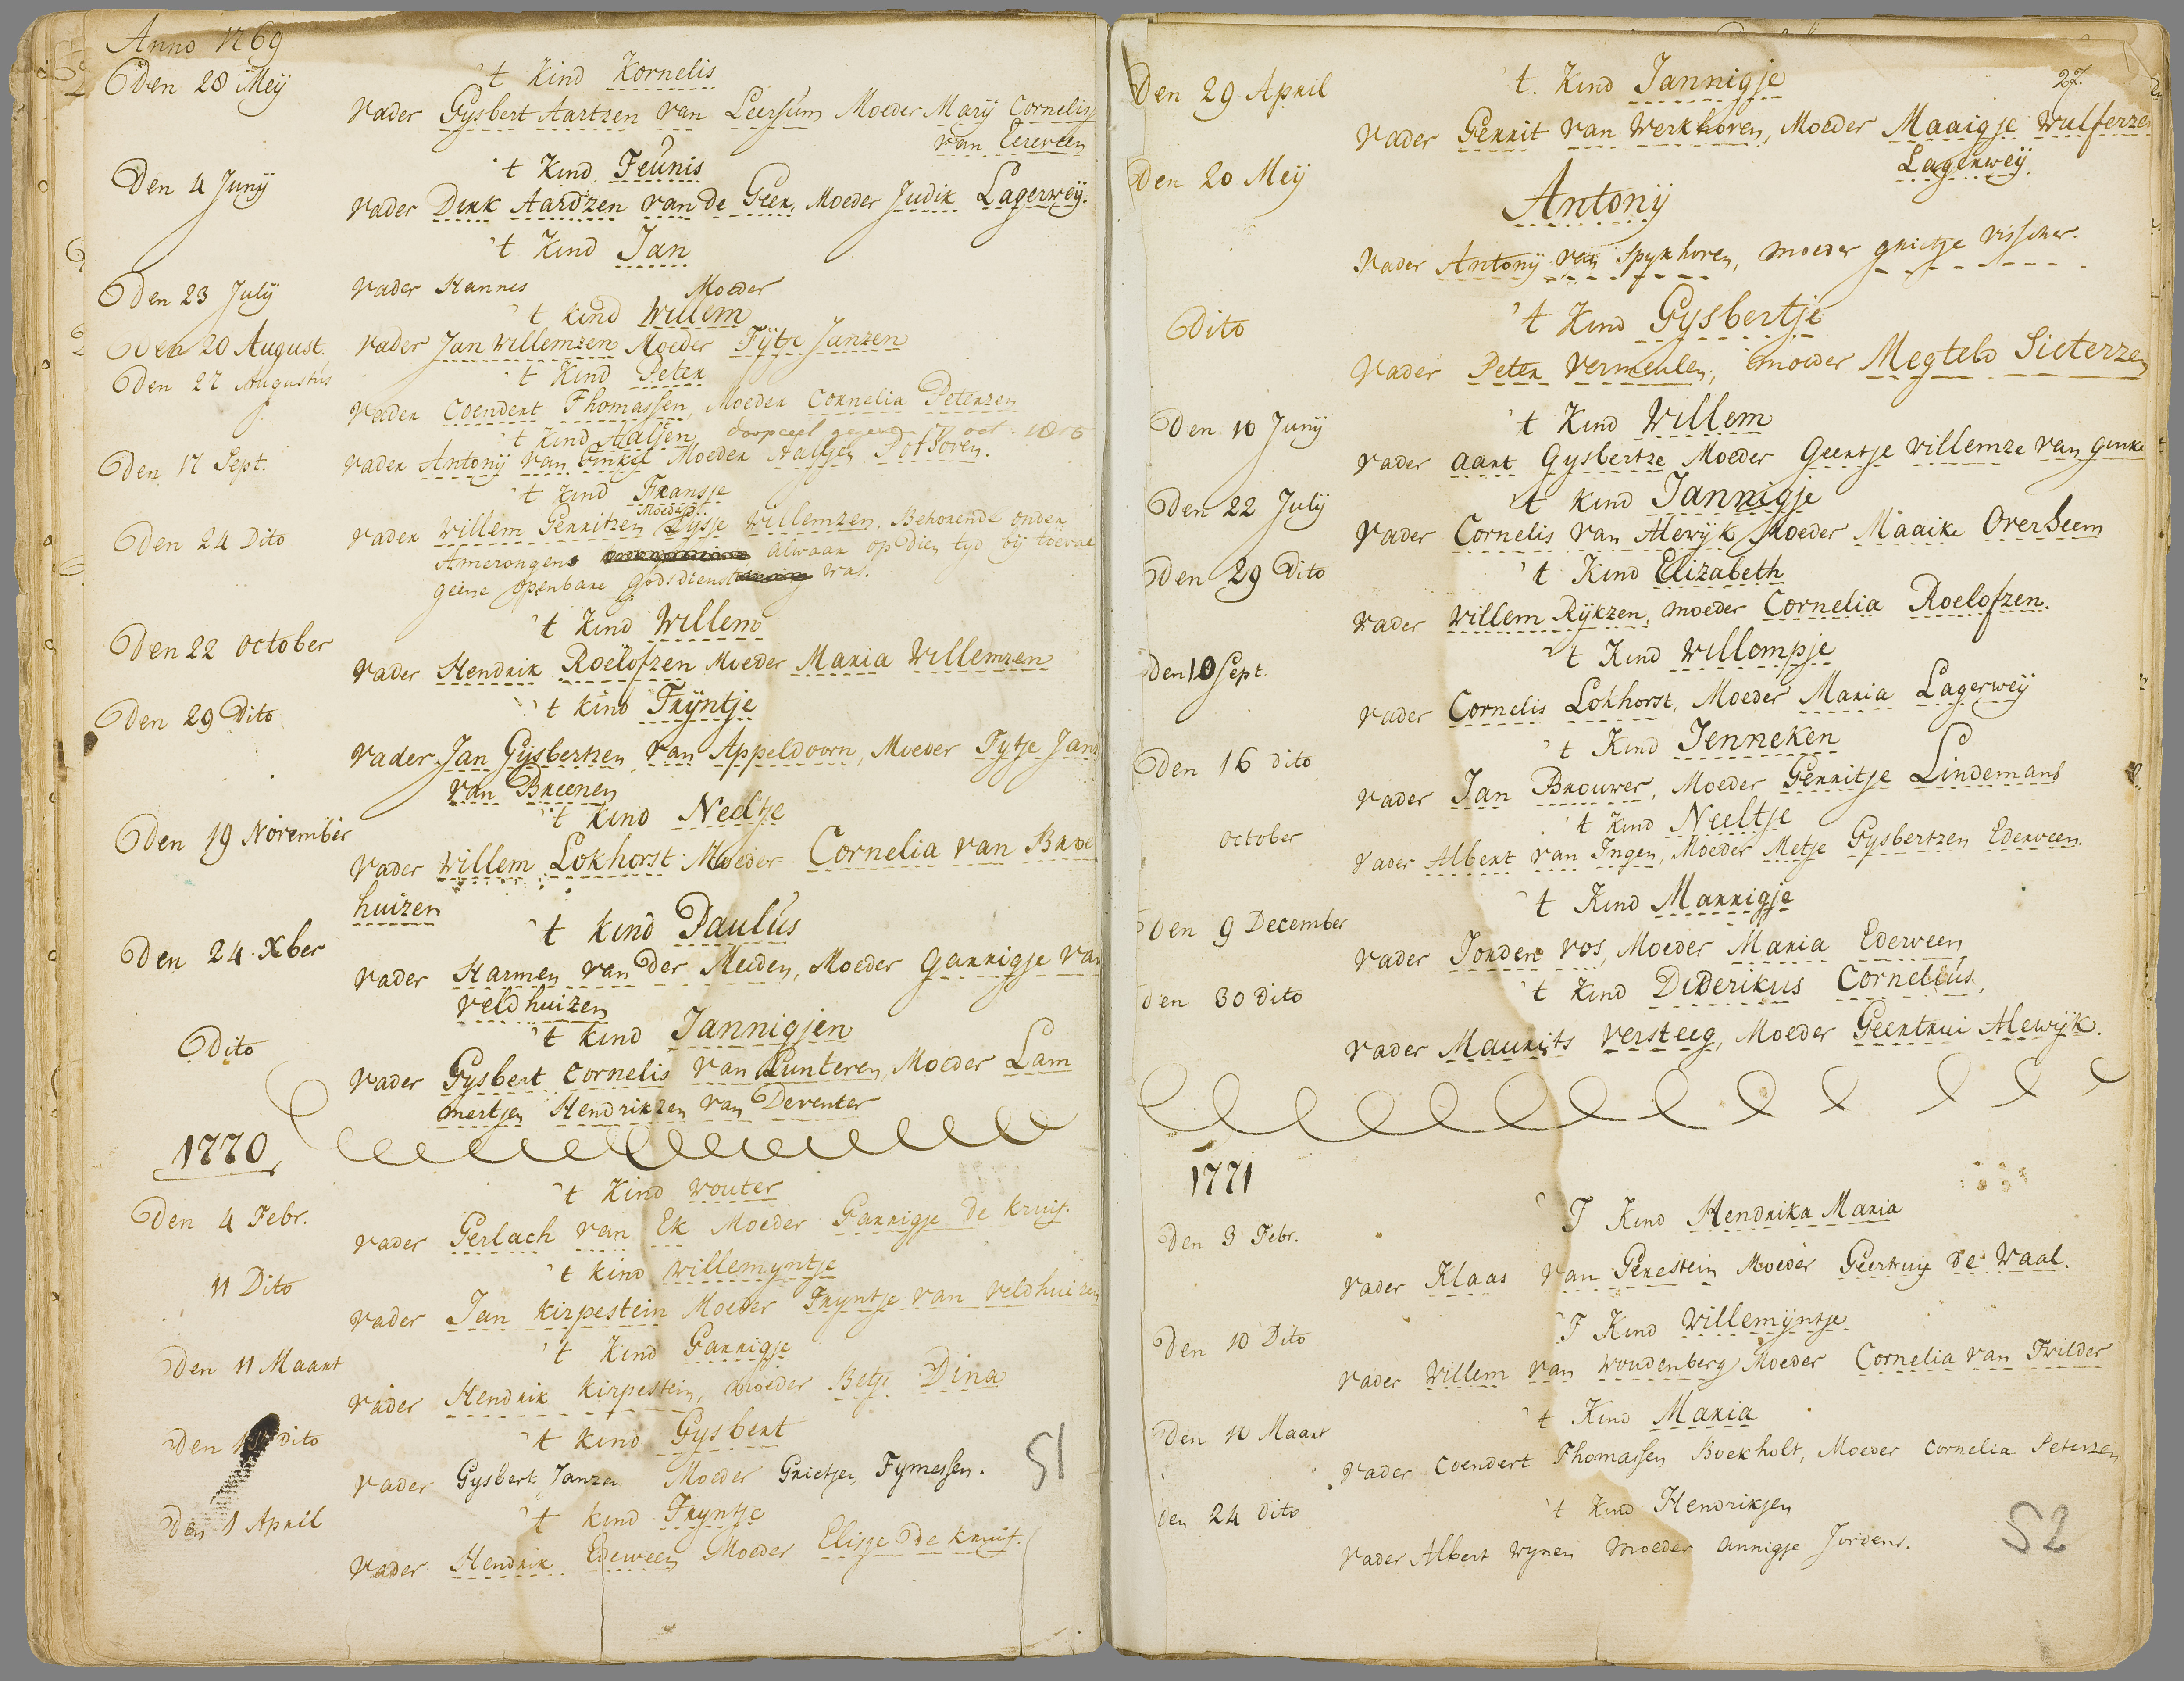 Anno 1769
Den 28 Meij
't Kind Kornelis
Vader Gysbert Aartzen van Leersum Moeder Marij Cornelisz
van Ederveen
Den 4 Junij
't Kind Teunis
Vader Dirk Aardzen van de Geer, Moeder Judik Lagerweij.
't Kind Jan
Den 23 Julij
Vader Hannes Moeder
't kind Willem
Den 20 August.
Vader Jan Willemzen Moeder Fijtje Janzen
Den 27 Augustus
't Kind Peter
Vader Coendert Thomassen, Moeder Cornelia Peterzen
't Kind Aaltjen doopceel gegeven 17 oct. 1805
Den 17 Sept.
Vader Antonij van Ginkel Moeder Aaltjen Pothoven.
't kind Fransje
Moeder
Den 24 Dito
Vader Willem Gerritzen Lijsje Willemzen, Behorende onder
Amerongen alwaar op Dien tyd bij toeval
geene openbare Godsdienst was.
't Kind Willem
Den 22 october
Vader Hendrik Roelofzen Moeder Maria Willemzen
Den 29 Dito
't kind Trijntje
Vader Jan Gijsbertzen van Appeldoorn, Moeder Fytje Jans
van Breenen
't kind Neeltje
Den 19 November
Vader Willem Lokhorst Moeder Cornelia van Broe
huizen
't kind Paulus
Den 24 Xber
Vader Harmen van der Meiden, Moeder Gannigje van
Veldhuizen
Dito
't kind Jannigjen
Vader Gysbert Cornelis van Lunteren, Moeder Lam
mertjen Hendrikzen van Deventer
1770
't Kind Wouter
Den 4 Febr.
Vader Gerlach van Ek Moeder Gannigje de Kruif.
't kind Willemyntje
11 Dito
Vader Jan Kirpestein Moeder Tryntje van Veldhuizen
't Kind Gannigje
Den 11 Maart
Vader Hendrik Kirpestein, Moeder Betje Dina
't kind Gysbert
Den dito
Vader Gysbert Janzen Moeder Grietjen Tymessen.
51
't kind Tryntje
Den 1 April
Vader Hendrik Edeweен Moeder Elisje De Kruif.
27.
Den 29 April
't Kind Jannigje
Vader Gerrit van Werkhoven, Moeder Maaigje Wulferzen
Lagerweij
Den 20 Meij
Antonij
Vader Antonij van Spykhoven, Moeder Grietje Visscher.
Dito
't Kind Gysbertje
Vader Peter Vermeulen, Moeder Megteld Sieterzen
Den 10 Junij
't Kind Willem
Vader Aart Gysbertze Moeder Geertje Willemze van Ginke
Den 22 Julij
't kind Jannigje
Vader Cornelis van Alewijk Moeder Maaike Overheem
Den 29 Dito
't Kind Elizabeth
Vader Willem Rijkzen, Moeder Cornelia Roelofzen.
Den 10 Sept.
't Kind Willempje
Vader Cornelis Lokhorst, Moeder Maria Lagerweij
Den 16 dito
't Kind Jenneken
Vader Jan Brouwer, Moeder Gerritje Lindemans
october
't Kind Neeltje
Vader Albert van Ingen, Moeder Metje Gysbertzen Ederveen.
Den 9 December
't Kind Marrigje
Vader Jorden Vos, Moeder Maria Ederveen
Den 30 dito
't Kind Diderikus Cornelius,
Vader Maurits Versteeg, Moeder Geertrui Alewijk.
1771
T Kind Hendrika Maria
Den 3 Febr.
Vader Klaas van Perestein Moeder Geertruy de Waal.
T Kind Willemijntje
Den 10 Dito
Vader Willem van Woudenberg Moeder Cornelia van Frilder
't Kind Maria
Den 10 Maart
Vader Coendert Thomassen Boekholt, Moeder Cornelia Peterzen
Den 24 dito
't kind Hendrikjen
Vader Albert Wynen Moeder Annigje Jordens.
52